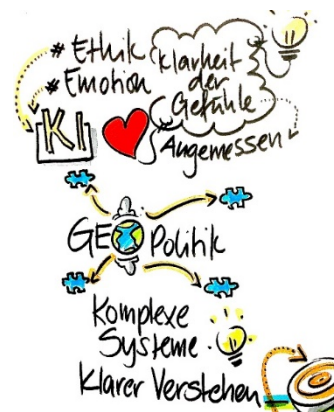 # Ethik
# Emotion
Klarheit
der
Gefühle
KI
Angemessen
GEOPolitik
Komplexe
Systeme
Klarer Verstehen